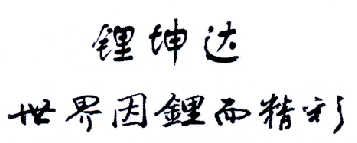 锂坤达
世界因鋰而精彩